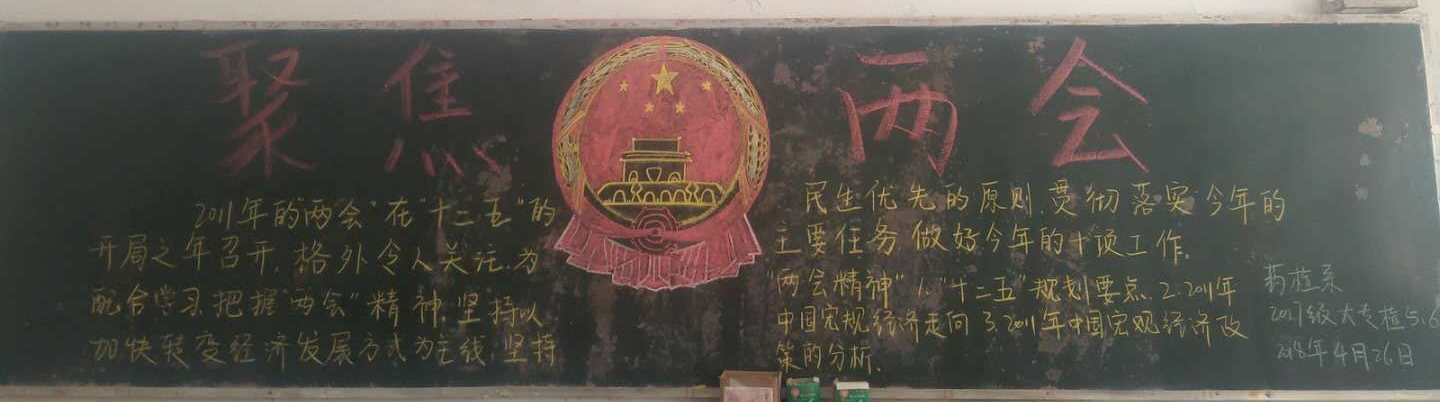 聚焦
两会
2011年的"两会"在"十二五"的
开局之年召开,格外令人关注.为
配合学习.把握"两会"精神.坚持以
加快转变经济发展方式为主线.坚持
民生优先的原则.贯彻落实今年的
主要任务 做好今年的十项工作.
"两会精神" 1."十二五"规划要点.2.2011年
中国宏规经济走向 3.2011年中国宏观经济政
策的分析.
药植系
2017级大专植5.6
2018年4月26日